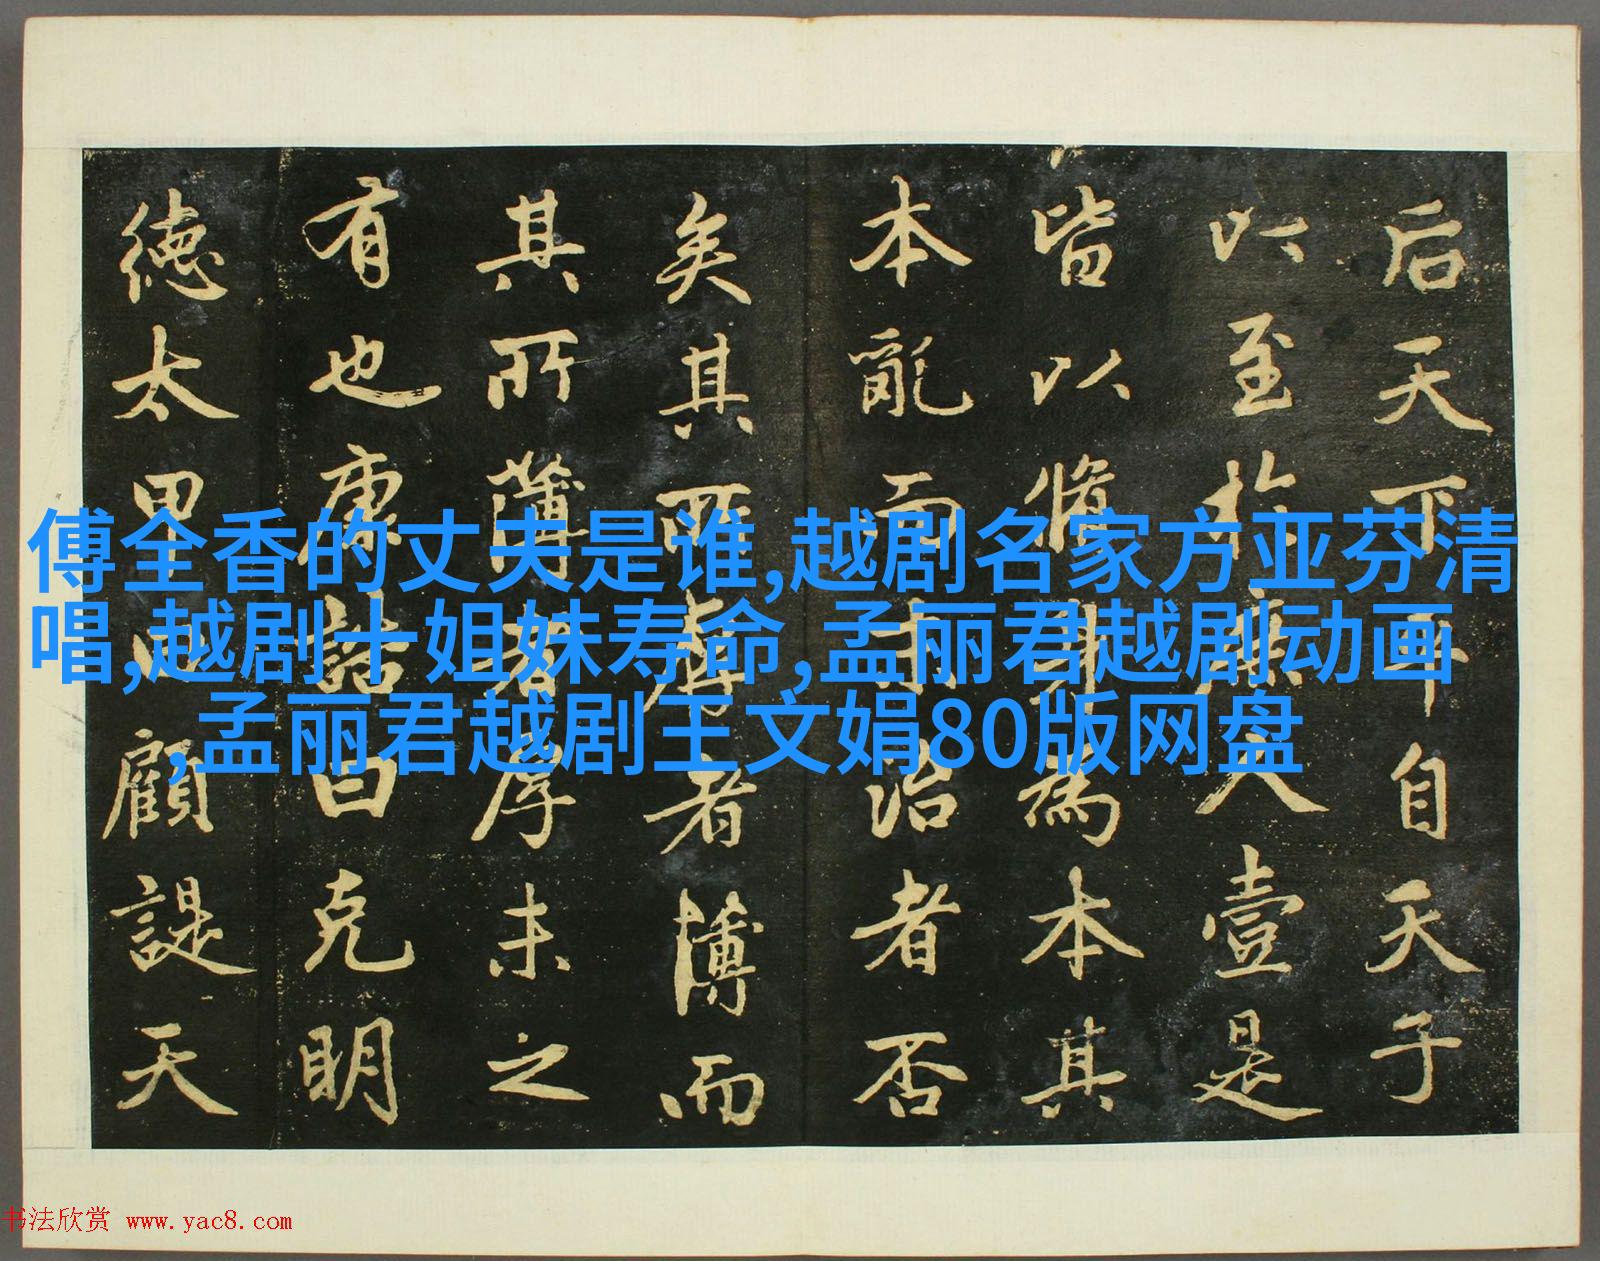 傅全香的丈夫是谁,越剧名家方亚芬清
唱,越剧十姐妹寿命,孟丽君越剧动画
,孟丽君越剧王文娟80版网盘
后天下平自天子
以至於庶人壹是
皆以脩身為本其
本亂而末治者否
矣其所厚者薄而
其所薄者厚未之
有也康誥曰克明
徳太甲曰顧諟天
书法欣赏 www.yac8.com